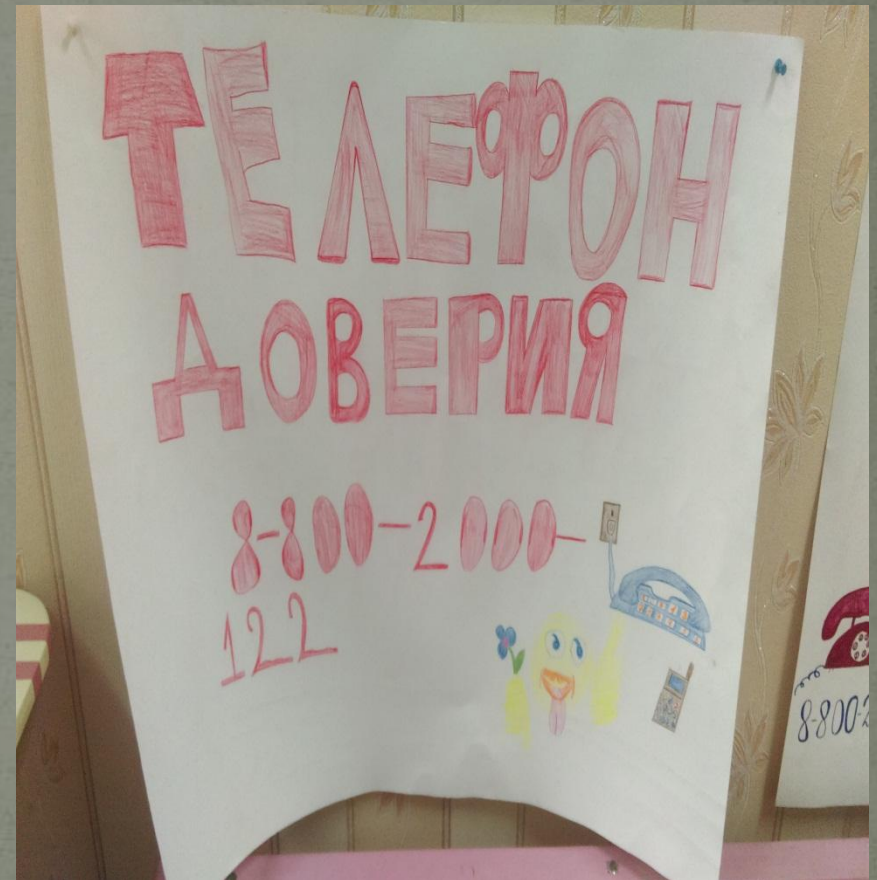 ТЕЛЕФОН
ДОВЕРИЯ
8-800-2000-
122
8-800-2